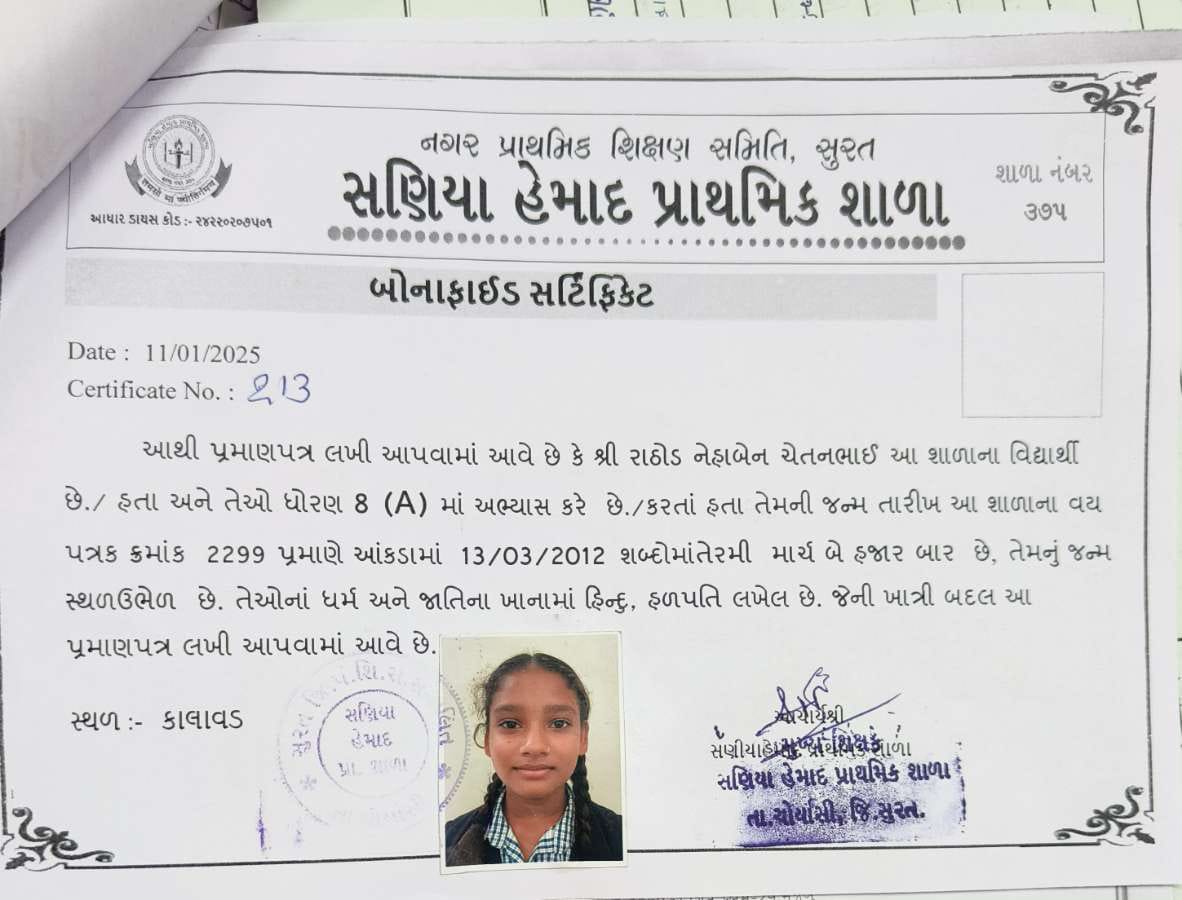 નગર પ્રાથમિક શિક્ષણ સમિતિ, સુરત
સણિયા હેમાદ પ્રાથમિક શાળા
શાળા નંબર
૩૭૫
તમસો મા જ્યોતિર્ગમય
આધાર ડાયસ કોડ :- ૨૪૨૨૦૨૦૭૫૦૧
બોનાફાઈડ સર્ટિફિકેટ
Date : 11/01/2025
Certificate No. : 213
આથી પ્રમાણપત્ર લખી આપવામાં આવે છે કે શ્રી રાઠોડ નેહાબેન ચેતનભાઈ આ શાળાના વિદ્યાર્થી
છે./ હતા અને તેઓ ધોરણ 8 (A) માં અભ્યાસ કરે છે./કરતાં હતા તેમની જન્મ તારીખ આ શાળાના વય
પત્રક ક્રમાંક 2299 પ્રમાણે આંકડામાં 13/03/2012 શબ્દોમાંતેરમી માર્ચ બે હજાર બાર છે, તેમનું જન્મ
સ્થળઉભેળ છે. તેઓનાં ધર્મ અને જાતિના ખાનામાં હિન્દુ, હળપતિ લખેલ છે. જેની ખાત્રી બદલ આ
પ્રમાણપત્ર લખી આપવામાં આવે છે.
સ્થળ :- કાલાવડ
સુરત જિ.પં.શિ.સ
સણિયા
હેમાદ
પ્રા. શાળા
આચાર્યશ્રી
સણીયાહેમાદ પ્રાથમિક શાળા
મુખ્ય શિક્ષક
સણિયા હેમાદ પ્રાથમિક શાળા
તા.ચોર્યાસી, જિ.સુરત.